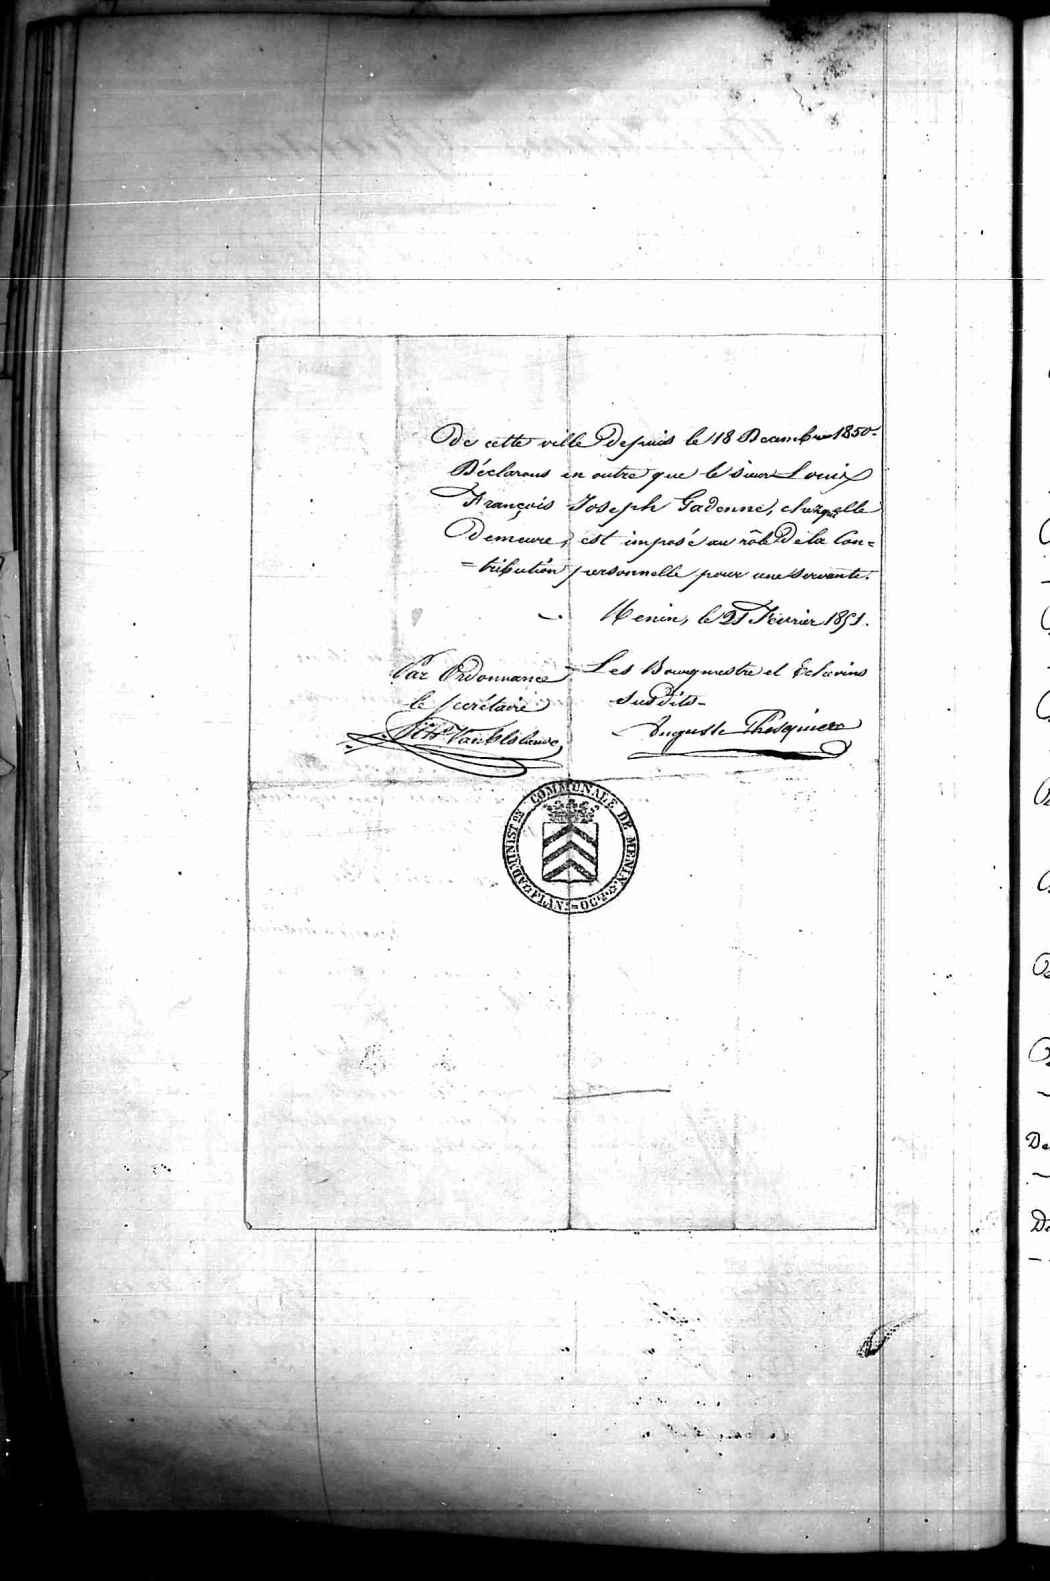 De cette ville depuis le 18 Decembre 1850.
Déclarons en outre que le sieur Louis
François Joseph Gadenne, chez qui elle
Demeure, est imposé au rôle De la Con=
=tribution personnelle pour une servante.
Menin, le 21 Février 1851.
Par Ordonnance
le secrétaire
Les Bourgmestre et Echevins
susdits
Auguste
ADMINIST.ON COMMUNALE DE MENIN
FLAN.E OCC.
De
De